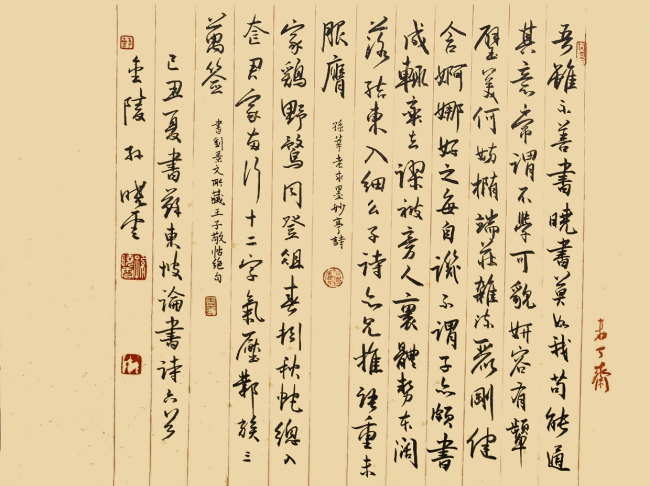 吾雖不善書曉書莫如我苟能通
其意常謂不學可貌妍容有顰
璧美何妨橢端莊雜流麗剛健
含婀娜好之每自譏不謂子亦頗書
成輒棄去謬被旁人裹體勢本闊
落結束入細么子詩亦見推語重未
服膺
孫莘老求墨妙亭詩
家鷄野鶩同登俎春蚓秋蛇總入
奩君家兩行十二字氣壓鄴侯三
萬簽
書劉景文所藏王子敬帖絕句
己丑夏書蘇東坡論書詩
金陵孫曉雲